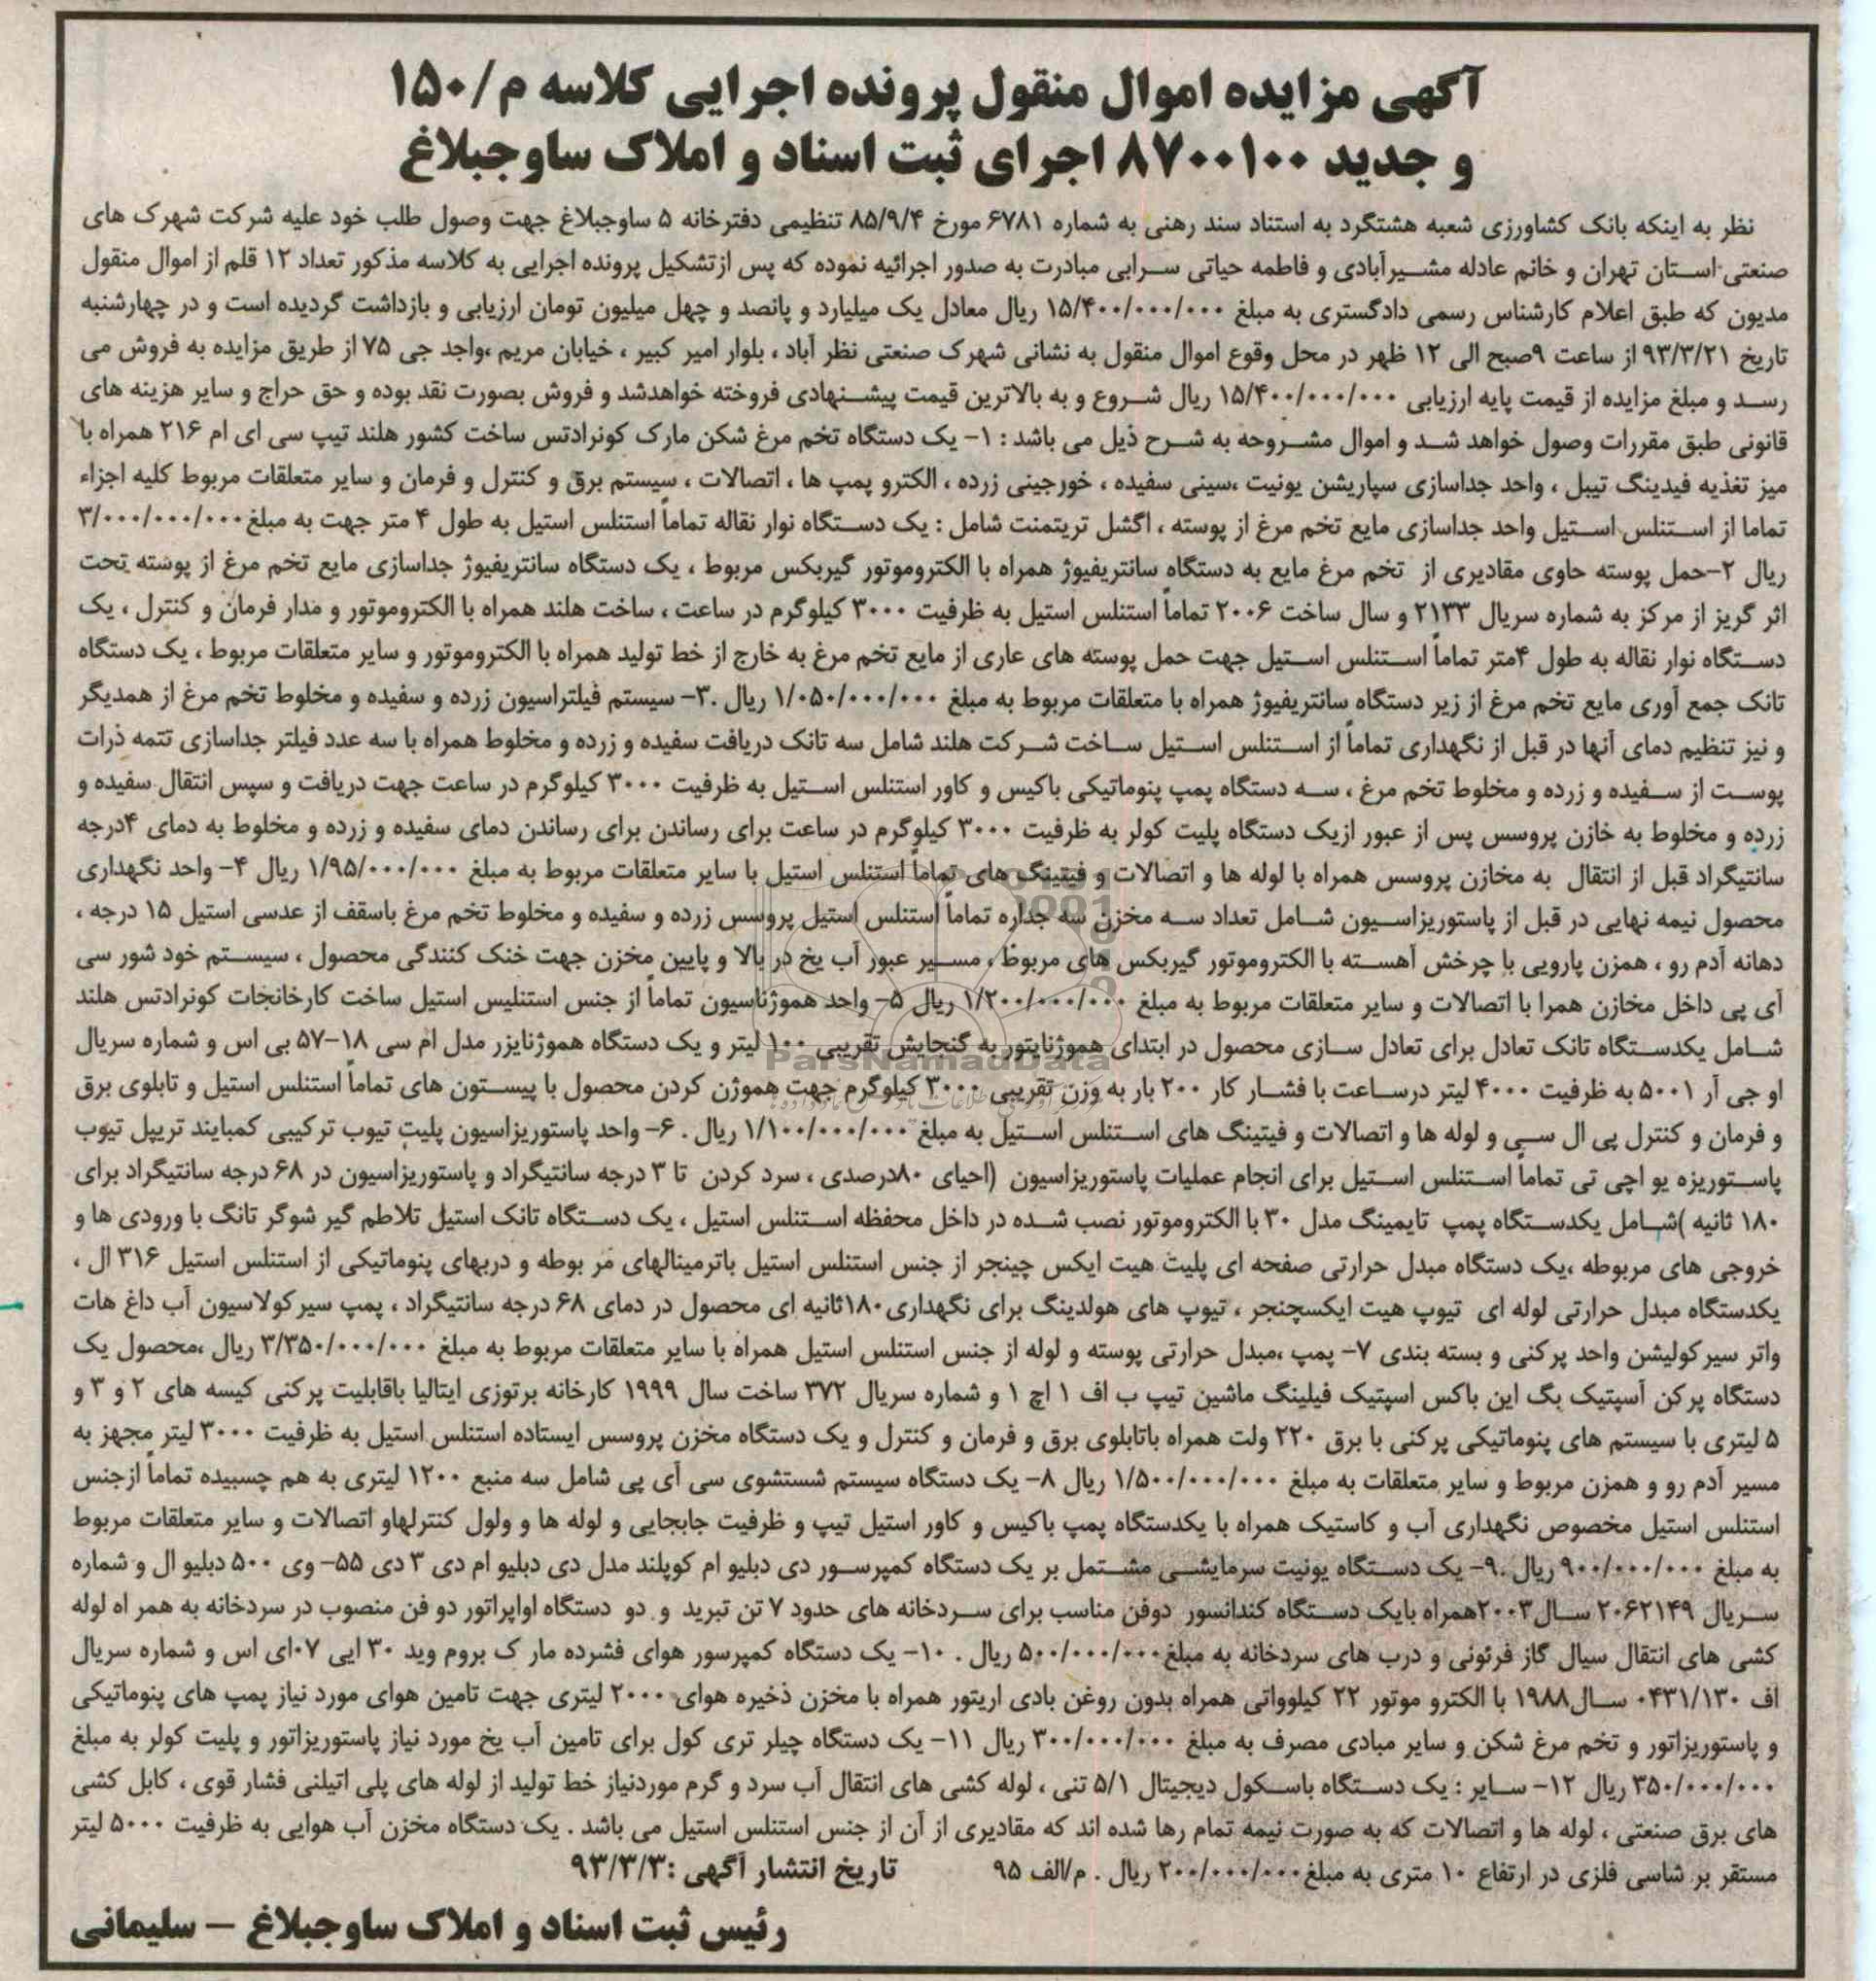 آگهی مزایده اموال منقول پرونده اجرایی کلاسه م/۱۵۰
و جدید ۸۷۰۰۱۰۰ اجرای ثبت اسناد و املاک ساوجبلاغ
نظر به اینکه بانک کشاورزی شعبه هشتگرد به استناد سند رهنی به شماره ۶۷۸۱ مورخ ۸۵/۹/۴ تنظیمی دفترخانه ۵ ساوجبلاغ جهت وصول طلب خود علیه شرکت شهرک های
صنعتی استان تهران و خانم عادله مشیرآبادی و فاطمه حیاتی سرابی مبادرت به صدور اجرائیه نموده که پس ازتشکیل پرونده اجرایی به کلاسه مذکور تعداد ۱۲ قلم از اموال منقول
مدیون که طبق اعلام کارشناس رسمی دادگستری به مبلغ ۱۵/۴۰۰/۰۰۰/۰۰۰ ریال معادل یک میلیارد و پانصد و چهل میلیون تومان ارزیابی و بازداشت گردیده است و در چهارشنبه
تاریخ ۹۳/۳/۲۱ از ساعت ۹صبح الی ۱۲ ظهر در محل وقوع اموال منقول به نشانی شهرک صنعتی نظر آباد ، بلوار امیر کبیر ، خیابان مریم ،واجد جی ۷۵ از طریق مزایده به فروش می
رسد و مبلغ مزایده از قیمت پایه ارزیابی ۱۵/۴۰۰/۰۰۰/۰۰۰ ریال شروع و به بالاترین قیمت پیشنهادی فروخته خواهدشد و فروش بصورت نقد بوده و حق حراج و سایر هزینه های
قانونی طبق مقررات وصول خواهد شد و اموال مشروحه به شرح ذیل می باشد : ۱- یک دستگاه تخم مرغ شکن مارک کونرادتس ساخت کشور هلند تیپ سی ای ام ۲۱۶ همراه با
میز تغذیه فیدینگ تیبل ، واحد جداسازی سپاریشن یونیت ،سینی سفیده ، خورجینی زرده ، الکترو پمپ ها ، اتصالات ، سیستم برق و کنترل و فرمان و سایر متعلقات مربوط کلیه اجزاء
تماما از استنلس استیل واحد جداسازی مایع تخم مرغ از پوسته ، اگشل تریتمنت شامل : یک دستگاه نوار نقاله تماماً استنلس استیل به طول ۴ متر جهت به مبلغ۳/۰۰۰/۰۰۰/۰۰۰
ریال ۲-حمل پوسته حاوی مقادیری از تخم مرغ مایع به دستگاه سانتریفیوژ همراه با الکتروموتور گیربکس مربوط ، یک دستگاه سانتریفیوژ جداسازی مایع تخم مرغ از پوسته تحت
اثر گریز از مرکز به شماره سریال ۲۱۳۳ و سال ساخت ۲۰۰۶ تماماً استنلس استیل به ظرفیت ۳۰۰۰ کیلوگرم در ساعت ، ساخت هلند همراه با الکتروموتور و مدار فرمان و کنترل ، یک
دستگاه نوار نقاله به طول ۴متر تماماً استنلس استیل جهت حمل پوسته های عاری از مایع تخم مرغ به خارج از خط تولید همراه با الکتروموتور و سایر متعلقات مربوط ، یک دستگاه
تانک جمع آوری مایع تخم مرغ از زیر دستگاه سانتریفیوژ همراه با متعلقات مربوط به مبلغ ۱/۰۵۰/۰۰۰/۰۰۰ ریال .۳- سیستم فیلتراسیون زرده و سفیده و مخلوط تخم مرغ از همدیگر
و نیز تنظیم دمای آنها در قبل از نگهداری تماماً از استنلس استیل ساخت شرکت هلند شامل سه تانک دریافت سفیده و زرده و مخلوط همراه با سه عدد فیلتر جداسازی تتمه ذرات
پوست از سفیده و زرده و مخلوط تخم مرغ ، سه دستگاه پمپ پنوماتیکی باکیس و کاور استنلس استیل به ظرفیت ۳۰۰۰ کیلوگرم در ساعت جهت دریافت و سپس انتقال سفیده و
زرده و مخلوط به خازن پروسس پس از عبور ازیک دستگاه پلیت کولر به ظرفیت ۳۰۰۰ کیلوگرم در ساعت برای رساندن برای رساندن دمای سفیده و زرده و مخلوط به دمای ۴درجه
سانتیگراد قبل از انتقال به مخازن پروسس همراه با لوله ها و اتصالات و فیتینگ های تماماً استنلس استیل با سایر متعلقات مربوط به مبلغ ۱/۹۵/۰۰۰/۰۰۰ ریال ۴- واحد نگهداری
محصول نیمه نهایی در قبل از پاستوریزاسیون شامل تعداد سه مخزن سه جداره تماماً استنلس استیل پروسس زرده و سفیده و مخلوط تخم مرغ باسقف از عدسی استیل ۱۵ درجه ،
دهانه آدم رو ، همزن پارویی با چرخش آهسته با الکتروموتور گیربکس های مربوط ، مسیر عبور آب یخ در بالا و پایین مخزن جهت خنک کنندگی محصول ، سیستم خود شور سی
آی پی داخل مخازن همرا با اتصالات و سایر متعلقات مربوط به مبلغ ۱/۲۰۰/۰۰۰/۰۰۰ ریال ۵- واحد هموژناسیون تماماً از جنس استنلیس استیل ساخت کارخانجات کونرادتس هلند
شامل یکدستگاه تانک تعادل برای تعادل سازی محصول در ابتدای هموژنایتور به گنجایش تقریبی ۱۰۰ لیتر و یک دستگاه هموژنایزر مدل ام سی ۱۸-۵۷ بی اس و شماره سریال
او جی آر ۵۰۰۱ به ظرفیت ۴۰۰۰ لیتر درساعت با فشار کار ۲۰۰ بار به وزن تقریبی ۳۰۰۰ کیلوگرم جهت هموژن کردن محصول با پیستون های تماماً استنلس استیل و تابلوی برق
و فرمان و کنترل پی ال سی و لوله ها و اتصالات و فیتینگ های استنلس استیل به مبلغ ۱/۱۰۰/۰۰۰/۰۰۰ ریال . ۶- واحد پاستوریزاسیون پلیت تیوب ترکیبی کمبایند تریپل تیوب
پاستوریزه یو اچی تی تماماً استنلس استیل برای انجام عملیات پاستوریزاسیون (احیای ۸۰درصدی ، سرد کردن تا ۳ درجه سانتیگراد و پاستوریزاسیون در ۶۸ درجه سانتیگراد برای
۱۸۰ ثانیه )شامل یکدستگاه پمپ تایمینگ مدل ۳۰ با الکتروموتور نصب شده در داخل محفظه استنلس استیل ، یک دستگاه تانک استیل تلاطم گیر شوگر تانگ با ورودی ها و
خروجی های مربوطه ،یک دستگاه مبدل حرارتی صفحه ای پلیت هیت ایکس چینجر از جنس استنلس استیل باترمینالهای مر بوطه و دربهای پنوماتیکی از استنلس استیل ۳۱۶ ال ،
یکدستگاه مبدل حرارتی لوله ای تیوپ هیت ایکسچنجر ، تیوپ های هولدینگ برای نگهداری۱۸۰ثانیه ای محصول در دمای ۶۸ درجه سانتیگراد ، پمپ سیرکولاسیون آب داغ هات
واتر سیرکولیشن واحد پرکنی و بسته بندی ۷- پمپ ،مبدل حرارتی پوسته و لوله از جنس استنلس استیل همراه با سایر متعلقات مربوط به مبلغ ۳/۳۵۰/۰۰۰/۰۰۰ ریال ،محصول یک
دستگاه پرکن آسپتیک بگ این باکس اسپتیک فیلینگ ماشین تیپ ب اف ۱ اچ ۱ و شماره سریال ۳۷۲ ساخت سال ۱۹۹۹ کارخانه برتوزی ایتالیا باقابلیت پرکنی کیسه های ۲ و ۳ و
۵ لیتری با سیستم های پنوماتیکی پرکنی با برق ۲۲۰ ولت همراه باتابلوی برق و فرمان و کنترل و یک دستگاه مخزن پروسس ایستاده استنلس استیل به ظرفیت ۳۰۰۰ لیتر مجهز به
مسیر آدم رو و همزن مربوط و سایر متعلقات به مبلغ ۱/۵۰۰/۰۰۰/۰۰۰ ریال ۸- یک دستگاه سیستم شستشوی سی آی پی شامل سه منبع ۱۲۰۰ لیتری به هم چسبیده تماماً ازجنس
استنلس استیل مخصوص نگهداری آب و کاستیک همراه با یکدستگاه پمپ باکیس و کاور استیل تیپ و ظرفیت جابجایی و لوله ها و ولول کنترلهاو اتصالات و سایر متعلقات مربوط
به مبلغ ۹۰۰/۰۰۰/۰۰۰ ریال .۹- یک دستگاه یونیت سرمایشی مشتمل بر یک دستگاه کمپرسور دی دبلیو ام کوپلند مدل دی دبلیو ام دی ۳ دی ۵۵- وی ۵۰۰ دبلیو ال و شماره
سریال ۲۰۶۲۱۴۹ سال۲۰۰۳همراه بایک دستگاه کندانسور دوفن مناسب برای سردخانه های حدود ۷ تن تبرید و دو دستگاه اواپراتور دو فن منصوب در سردخانه به همر اه لوله
کشی های انتقال سیال گاز فرئونی و درب های سردخانه به مبلغ۵۰۰/۰۰۰/۰۰۰ ریال . ۱۰- یک دستگاه کمپرسور هوای فشرده مار ک بروم وید ۳۰ ایی ۰۷ای اس و شماره سریال
اف ۰۴۳۱/۱۳۰ سال۱۹۸۸ با الکترو موتور ۲۲ کیلوواتی همراه بدون روغن بادی اریتور همراه با مخزن ذخیره هوای ۲۰۰۰ لیتری جهت تامین هوای مورد نیاز پمپ های پنوماتیکی
و پاستوریزاتور و تخم مرغ شکن و سایر مبادی مصرف به مبلغ ۳۰۰/۰۰۰/۰۰۰ ریال ۱۱- یک دستگاه چیلر تری کول برای تامین آب یخ مورد نیاز پاستوریزاتور و پلیت کولر به مبلغ
۳۵۰/۰۰۰/۰۰۰ ریال ۱۲- سایر : یک دستگاه باسکول دیجیتال ۵/۱ تنی ، لوله کشی های انتقال آب سرد و گرم موردنیاز خط تولید از لوله های پلی اتیلنی فشار قوی ، کابل کشی
های برق صنعتی ، لوله ها و اتصالات که به صورت نیمه تمام رها شده اند که مقادیری از آن از جنس استنلس استیل می باشد . یک دستگاه مخزن آب هوایی به ظرفیت ۵۰۰۰ لیتر
مستقر بر شاسی فلزی در ارتفاع ۱۰ متری به مبلغ۲۰۰/۰۰۰/۰۰۰ ریال . م/الف ۹۵ تاریخ انتشار آگهی :۹۳/۳/۳
رئیس ثبت اسناد و املاک ساوجبلاغ – سلیمانی
ParsNamadData